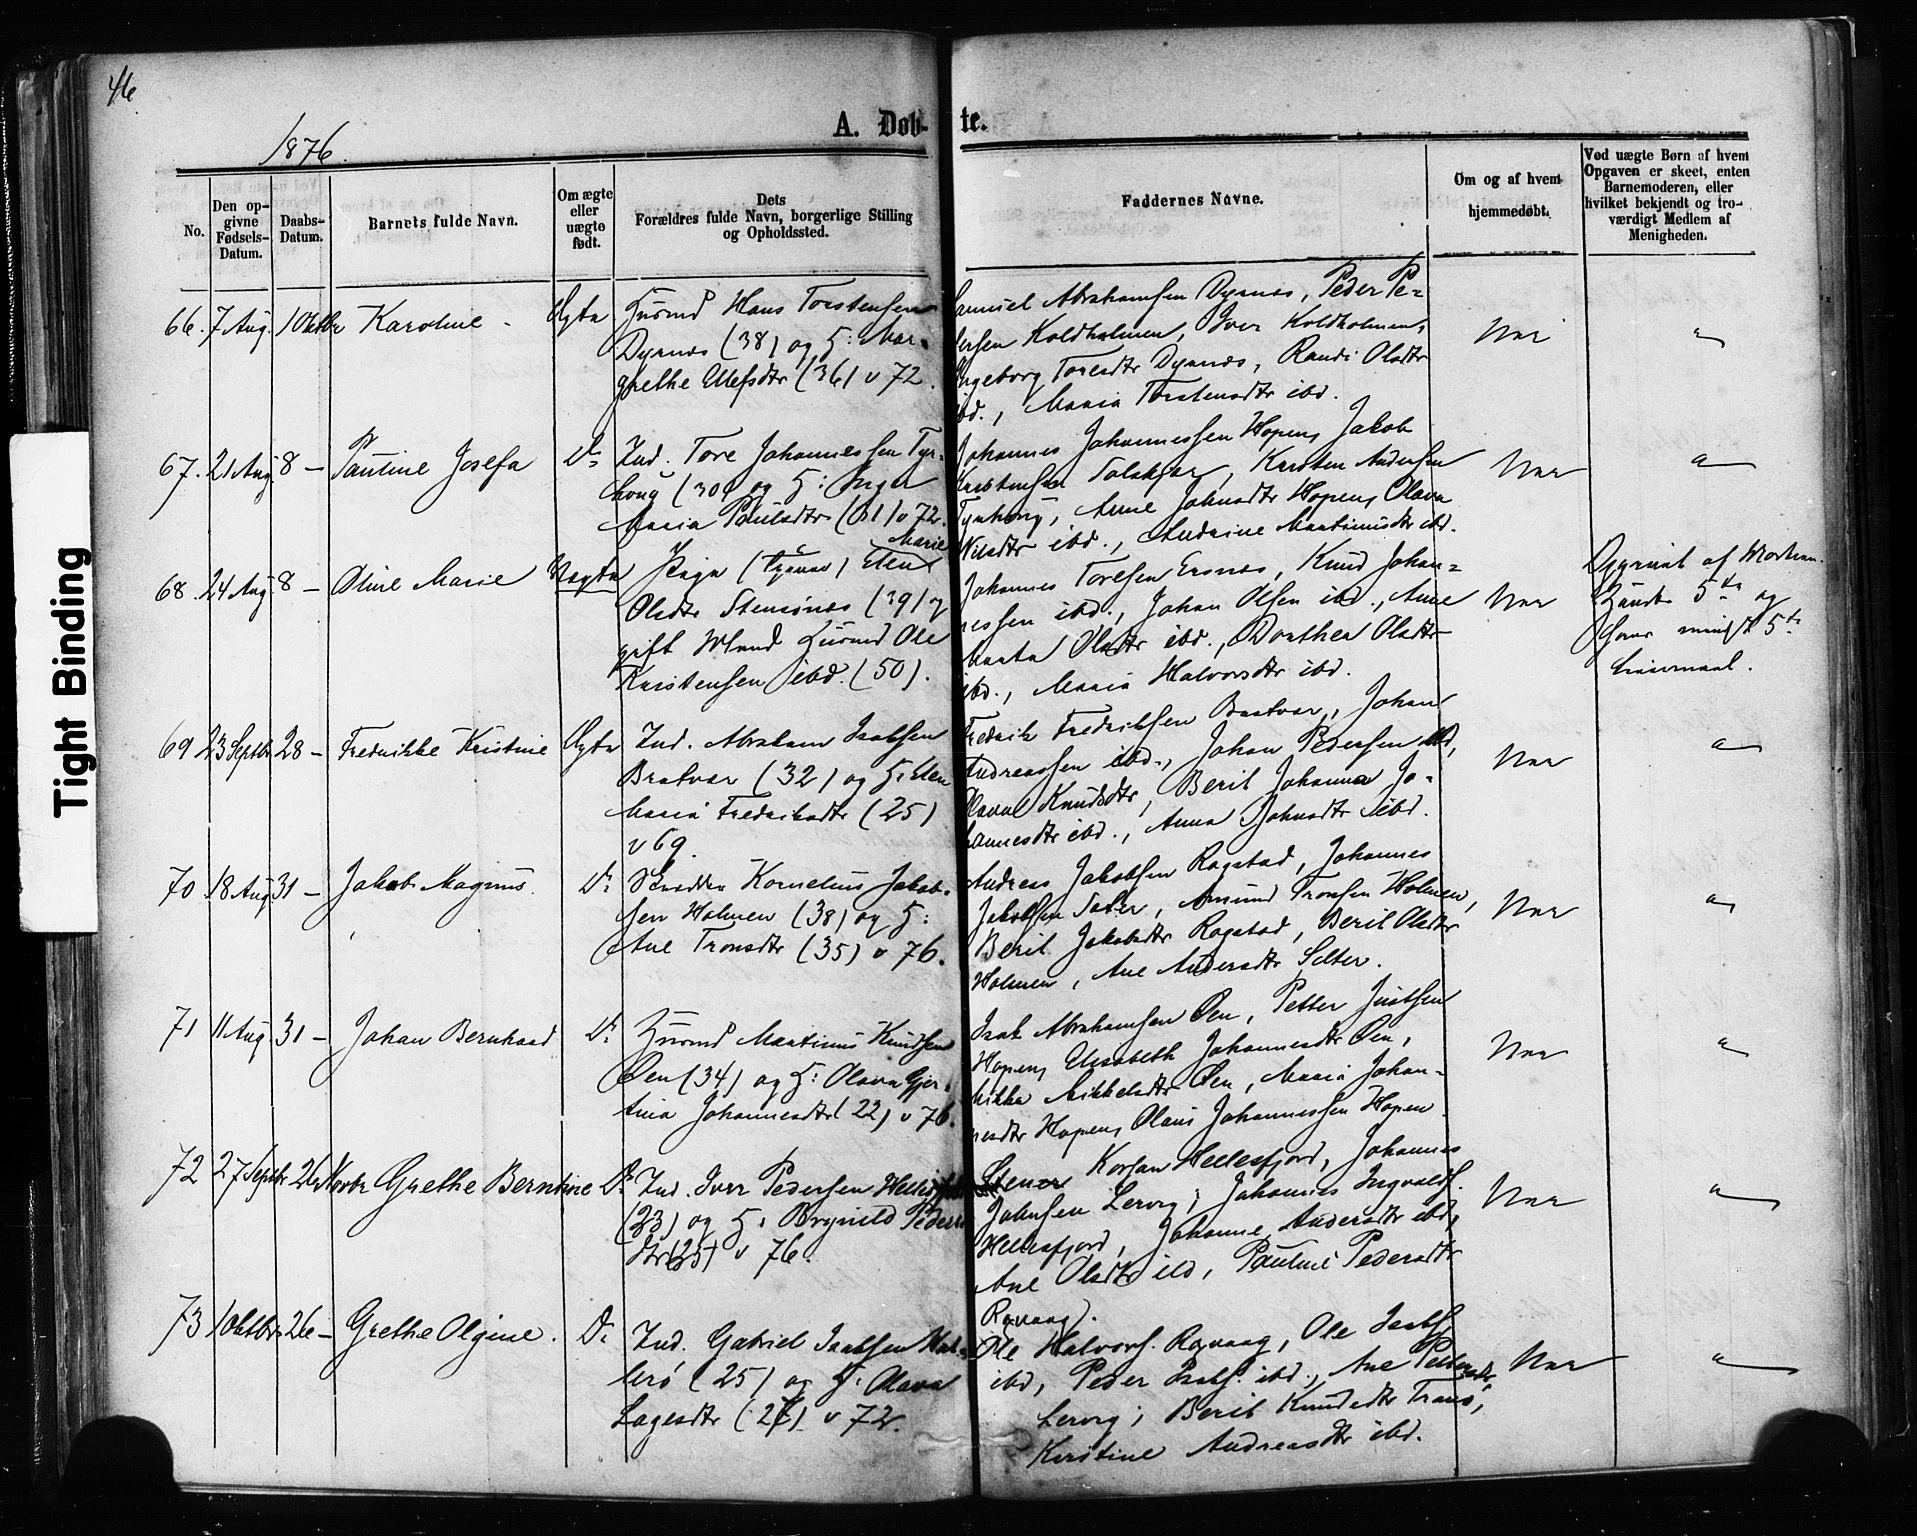 46
1876.
A. Døb-
te.
No.
Den op-
givne
Fødsels-
Datum.
Daabs-
Datum.
Barnets fulde Navn.
Om ægte
eller
uægte
født.
Dets
Forældres fulde Navn, borgerlige Stilling
og Opholdssted.
Faddernes Navne.
Om og af hvem
hjemmedøbt.
Ved uægte Børn af hvem
Opgaven er skeet, enten
Barnemoderen, eller
hvilket bekjendt og tro-
værdigt Medlem af
Menigheden.
66. 7 Aug. 1 Oktbr Karoline Ægte Husmd Hans Torstensen
Dyrnæs (38) og H: Mar-
grethe Ellefsdtr (36) v 72.
Samuel Abrahamsen Dyrnæs, Peder Pe-
dersen Koldholmen, Iver Koldholmen,
Ingeborg Toresdtr Dyrnæs, Randi Olsdtr
ibd., Maria Torstensdtr ibd.
Nei
"
67. 21 Aug 8 – Pauline Josefa Do Ind. Tore Johannessen Tyr-
houg (30) og H: Inger
Maria Paulsdtr (31) v 72.
Johannes Johannessen Hopen, Jakob
Kristensen, Kristen Andersen
Tyrhoug, Anne Johnsdtr Hopen, Olava
Nilsdtr ibd., Andrine Martinusdtr ibd.
Nei
"
68. 24 Aug 8 – Oline Marie Uægte Pige Elen Marie
Olsdtr Stensønæs (39) og
gift Mand Husmd Ole
Kristensen ibd. (50).
Johannes Toresen Ersnæs, Knud Johan-
nessen ibd., Johan Olsen ibd., Ane
Marta Olsdtr ibd., Dorthea Olsdtr
ibd., Maria Halvorsdtr ibd.
Nei
Opgivet af Moderen.
5te og
5te
Leiermaal.
69 23 Septbr 28 – Fredrikke Kristine Ægte Ind. Abraham Isaksen
Bratvær (32) og H: Elen
Maria Fredriksdtr (25)
v 69.
Fredrik Fredriksen Bratvær, Johan
Andreassen ibd., Johan Pedersen ibd,
Olava Knudsdtr, Berit Johanna Jo-
hannesdtr ibd., Anna Johnsdtr ibd.
Nei
"
70 18 Aug 31 – Jakob Magnus. Do Skrædder Kornelius Jakob-
sen Holmen (38) og H:
Ane Tronsdtr (35) v 76.
Andreas Jakobsen Rogstad, Johannes
Jakobsen, Amund Tronsen Holmen,
Berit Jakobsdtr Rogstad, Berit Olsdtr
Holmen, Ane Andersdtr Selter.
Nei
"
71 11 Aug. 31 – Johan Bernhard Do Husmd Martinus Knudsen
Øen (34) og H: Olava Gjer-
tina Johannesdtr (22) v 76.
Isak Abrahamsen Øen, Petter Justsen
Hopen, Elisabeth Johannesdtr Øen,
Mikkelsdtr Øen, Maria Johan-
nesdtr Hopen, Olaus Johannessen Hopen.
Nei
"
72 27 Septbr 26 Novbr Grethe Berntine Do Ind. Iver Pedersen Hellesfjord
(23) og H: Brynild Peders-
dtr (25) v 76.
Stener Korsan Hellesfjord, Johannes
Johnsen Lervig, Johannes Ingvalds.
Hellesfjord, Johanne Andersdtr ibd,
Ane Olsdtr ibd, Pauline Pedersdtr
Røvaag.
Nei
"
73 1 Oktbr 26 – Grethe Olgine. Do Ind. Gabriel Isaksen
(25) og H: Olava
Lagesdtr v 72.
Ole Halvors. Røvaag, Ole Isaks.
ibd, Peder Isaks. ibd., Ane Pedersdtr
Lervig, Berit Knudsdtr,
Kirstine Andreasdtr ibd.
Nei
"
Tight Binding